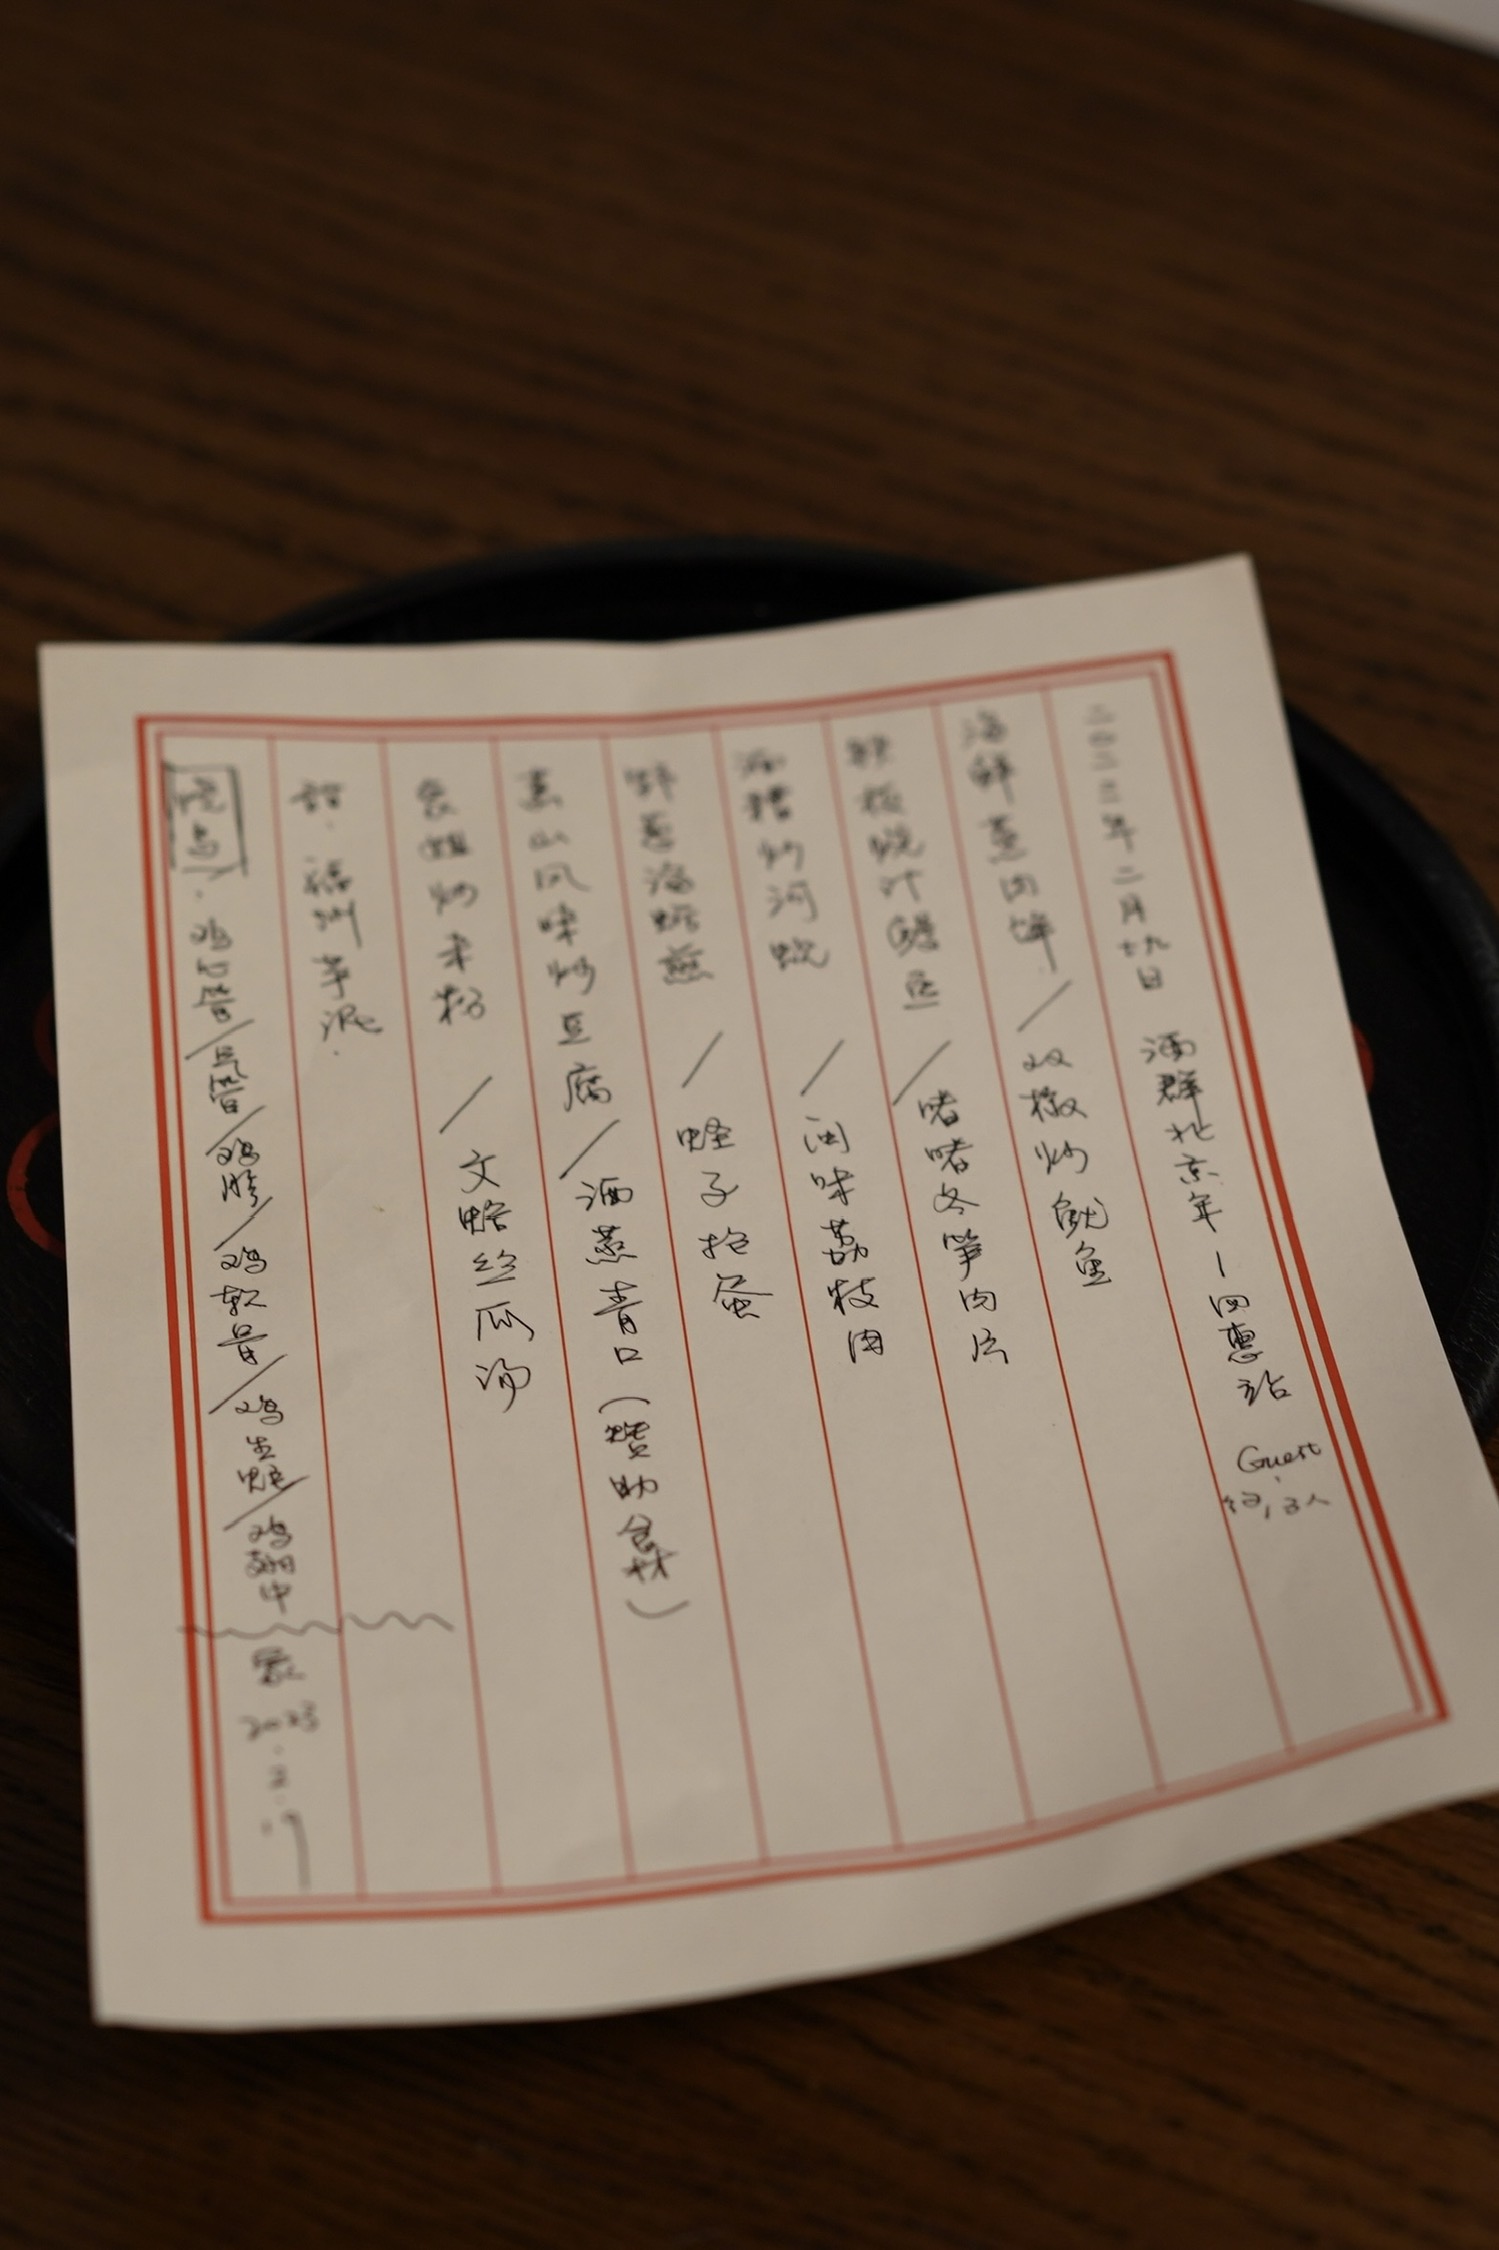 二〇二三年二月廿九日 酒群北京年一四惠站 Guest
海鲜蒸肉饼／双椒炒鱿鱼
铁板烧汁鳗鱼／啫啫冬笋肉片
酒糟炒河蚬／闽味荔枝肉
野葱海蛎煎／蛏子抱蛋
山风味炒豆腐／酒蒸青口（赞助食材）
炒米粉／文蛤丝瓜汤
甜．福州芋泥．
鸡心管／气管／鸡胗／鸡软骨／鸡生蚝／鸡翅中
2023.2.